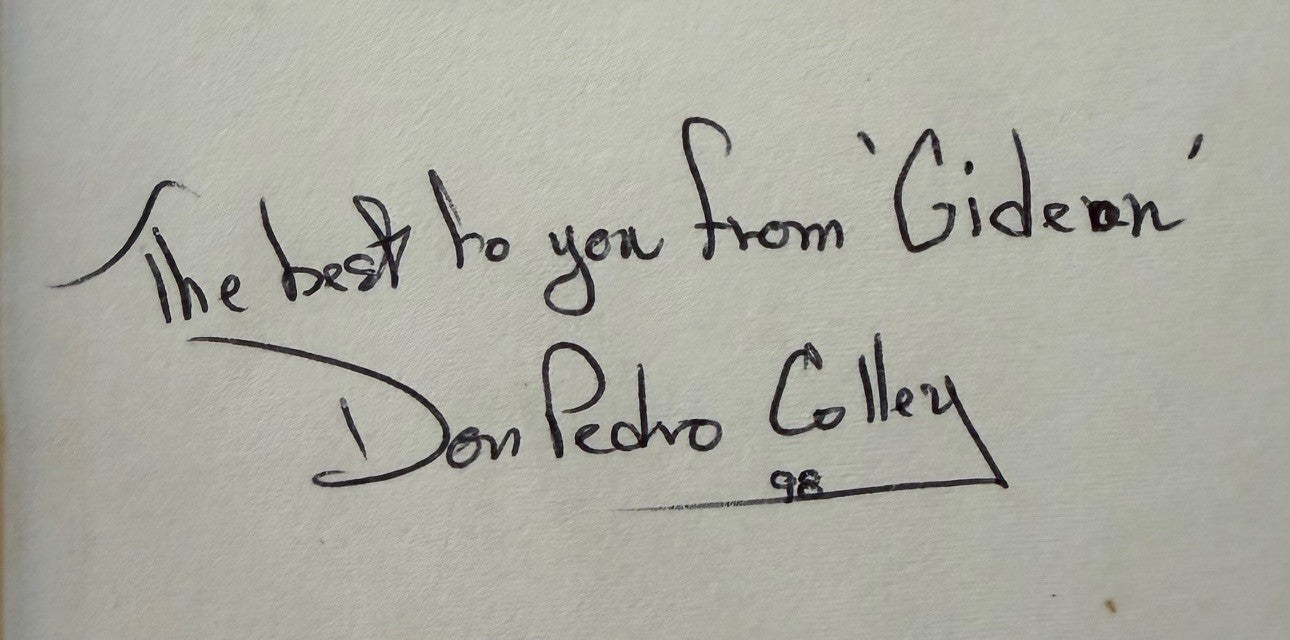 The best to you from 'Gideon'
Don Pedro Colley
98